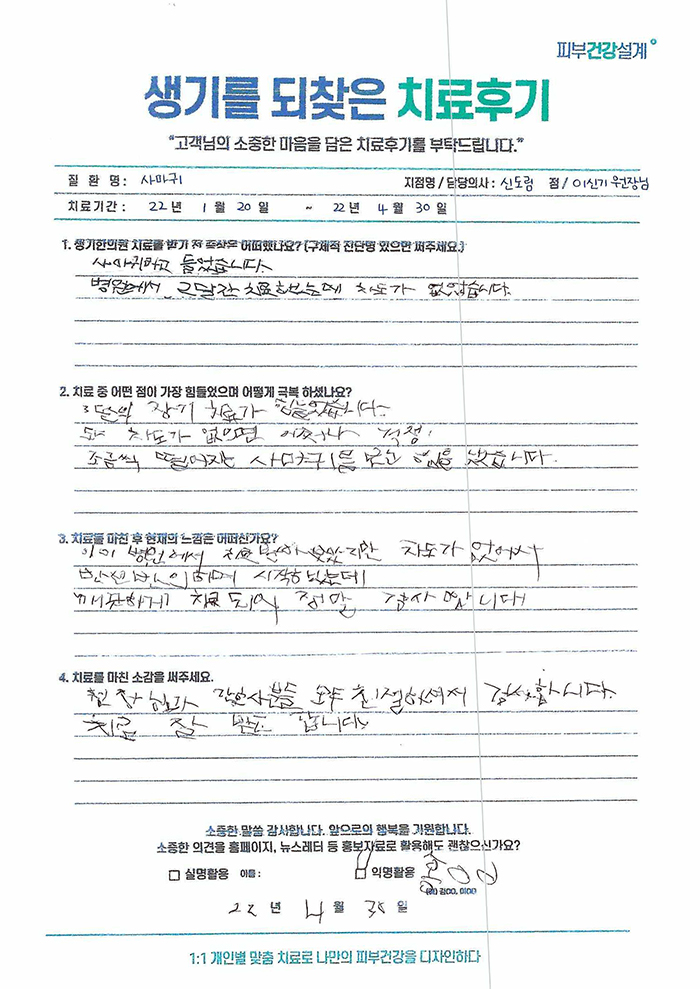 피부건강설계
생기를 되찾은 치료후기
"고객님의 소중한 마음을 담은 치료후기를 부탁드립니다."
질 환 명 : 사마귀 지점명 / 담당의사 : 신도림 점 / 이신기 원장님
치료기간 : 22 년 1 월 20 일 ~ 22 년 4 월 30 일
1. 생기한의원 치료를 받기 전 증상은 어떠했나요? (구체적 진단명 있으면 써주세요.)
사마귀라고 들었습니다.
병원에서 치료했는데 차도가 없었습니다.
2. 치료 중 어떤 점이 가장 힘들었으며 어떻게 극복 하셨나요?
3달의 장기 치료가 힘들었습니다.
또 차도가 없으면 어쩌나 걱정.
조금씩 떨어지는 사마귀를 보고 힘을 냈습니다.
3. 치료를 마친 후 현재의 느낌은 어떠신가요?
이미 병원에서 치료 받아 보았지만 차도가 없어서
반신반의하며 시작하였는데
깨끗하게 치료되어 정말 감사합니다
4. 치료를 마친 소감을 써주세요.
원장님과 간호사분들 모두 친절하셔서 감사합니다.
치료 잘 받고 갑니다.
소중한 말씀 감사합니다. 앞으로의 행복을 기원합니다.
소중한 의견을 홈페이지, 뉴스레터 등 홍보자료로 활용해도 괜찮으신가요?
실명활용 이름 : 익명활용
(예) 김OO, 이OO
22 년 4 월 30 일
1:1 개인별 맞춤 치료로 나만의 피부건강을 디자인하다